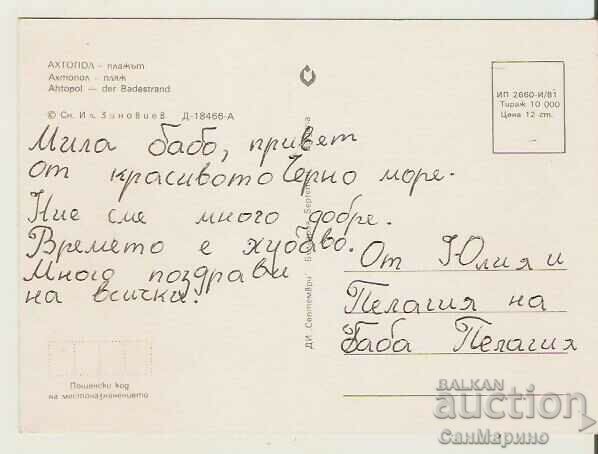 АХТОПОЛ - плажът
Ахтопол - пляж
Ahtopol — der Badestrand
© Сн. Ил. Зиновиев Д-18466-А
ИП 2660-И/81
Тираж 10 000
Цена 12 ст.
Мила бабо, привет
от красивото Черно море.
Ние сме много добре.
Времето е хубаво.
Много поздрави
на всички!
ДИ „Септември"
От Юлия и
Пелагия на
Баба Пелагия
Пощенски код
на местоназначението
BALKAN
auction
СанМарино